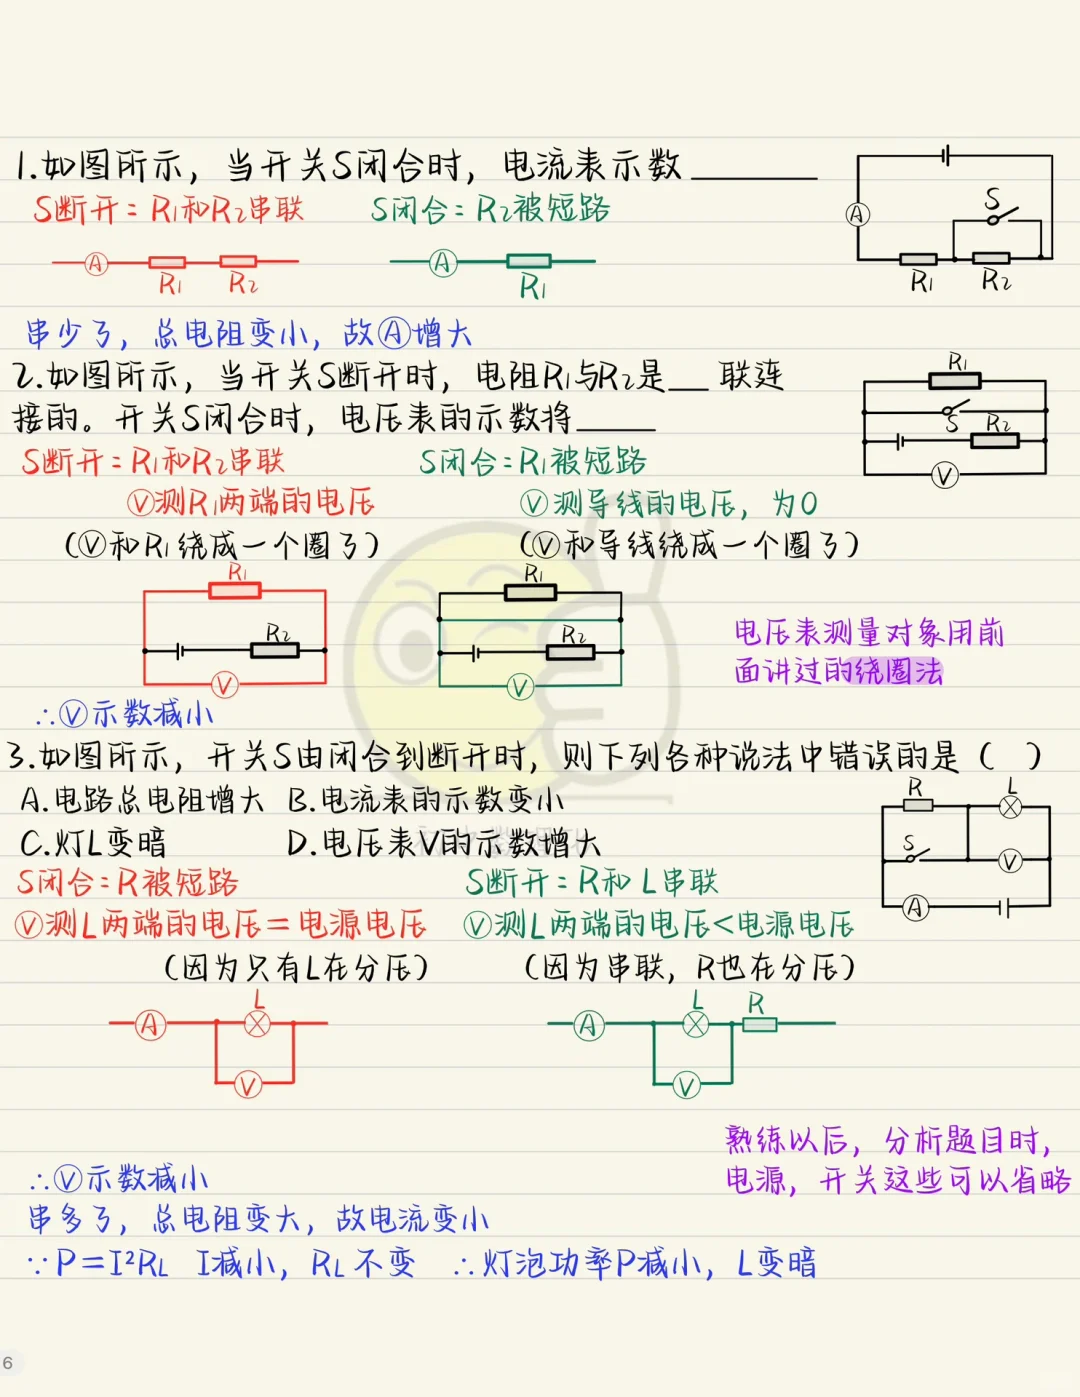 1.如图所示，当开关S闭合时，电流表示数________
S断开：R₁和R₂串联 S闭合：R₂被短路
A R₁ R₂ A R₁
A S R₁ R₂
串少了，总电阻变小，故Ⓐ增大
2.如图所示，当开关S断开时，电阻R₁与R₂是__联连
接的。开关S闭合时，电压表的示数将_____
R₁ S R₂ V
S断开：R₁和R₂串联 S闭合：R₁被短路
Ⓥ测R₁两端的电压 Ⓥ测导线的电压，为0
（Ⓥ和R₁绕成一个圈了） （Ⓥ和导线绕成一个圈了）
R₁ R₂ V R₁ R₂ V
电压表测量对象用前
面讲过的绕圈法
∴Ⓥ示数减小
3.如图所示，开关S由闭合到断开时，则下列各种说法中错误的是（ ）
A.电路总电阻增大 B.电流表的示数变小
C.灯L变暗 D.电压表V的示数增大
R L S V A
S闭合：R被短路 S断开：R和L串联
Ⓥ测L两端的电压＝电源电压 Ⓥ测L两端的电压＜电源电压
（因为只有L在分压） （因为串联，R也在分压）
A L V A L R V
熟练以后，分析题目时，
电源，开关这些可以省略
∴Ⓥ示数减小
串多了，总电阻变大，故电流变小
∵P＝I²RL I减小，RL不变 ∴灯泡功率P减小，L变暗
6